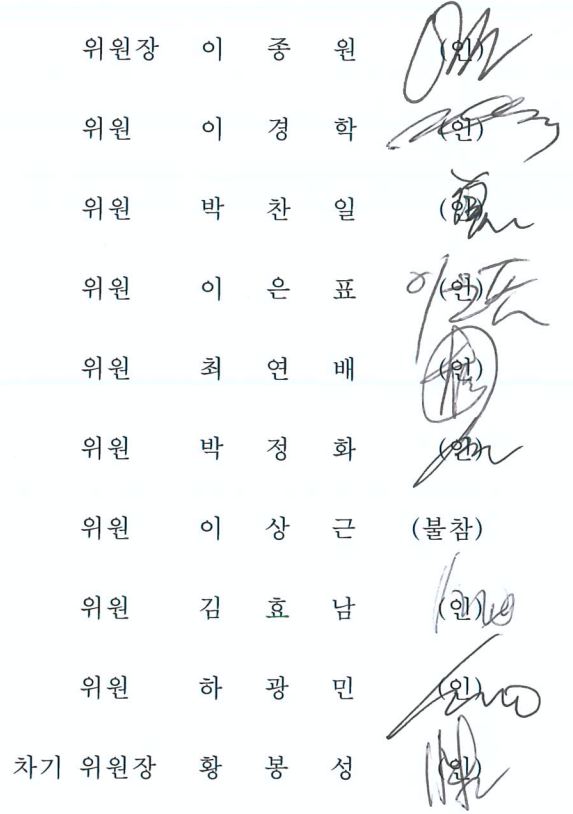 위원장 이 종 원 (인)
위원 이 경 학 (인)
위원 박 찬 일 (인)
위원 이 은 표 (인)
위원 최 연 배 (인)
위원 박 정 화 (인)
위원 이 상 근 (불참)
위원 김 효 남 (인)
위원 하 광 민 (인)
차기 위원장 황 봉 성 (인)